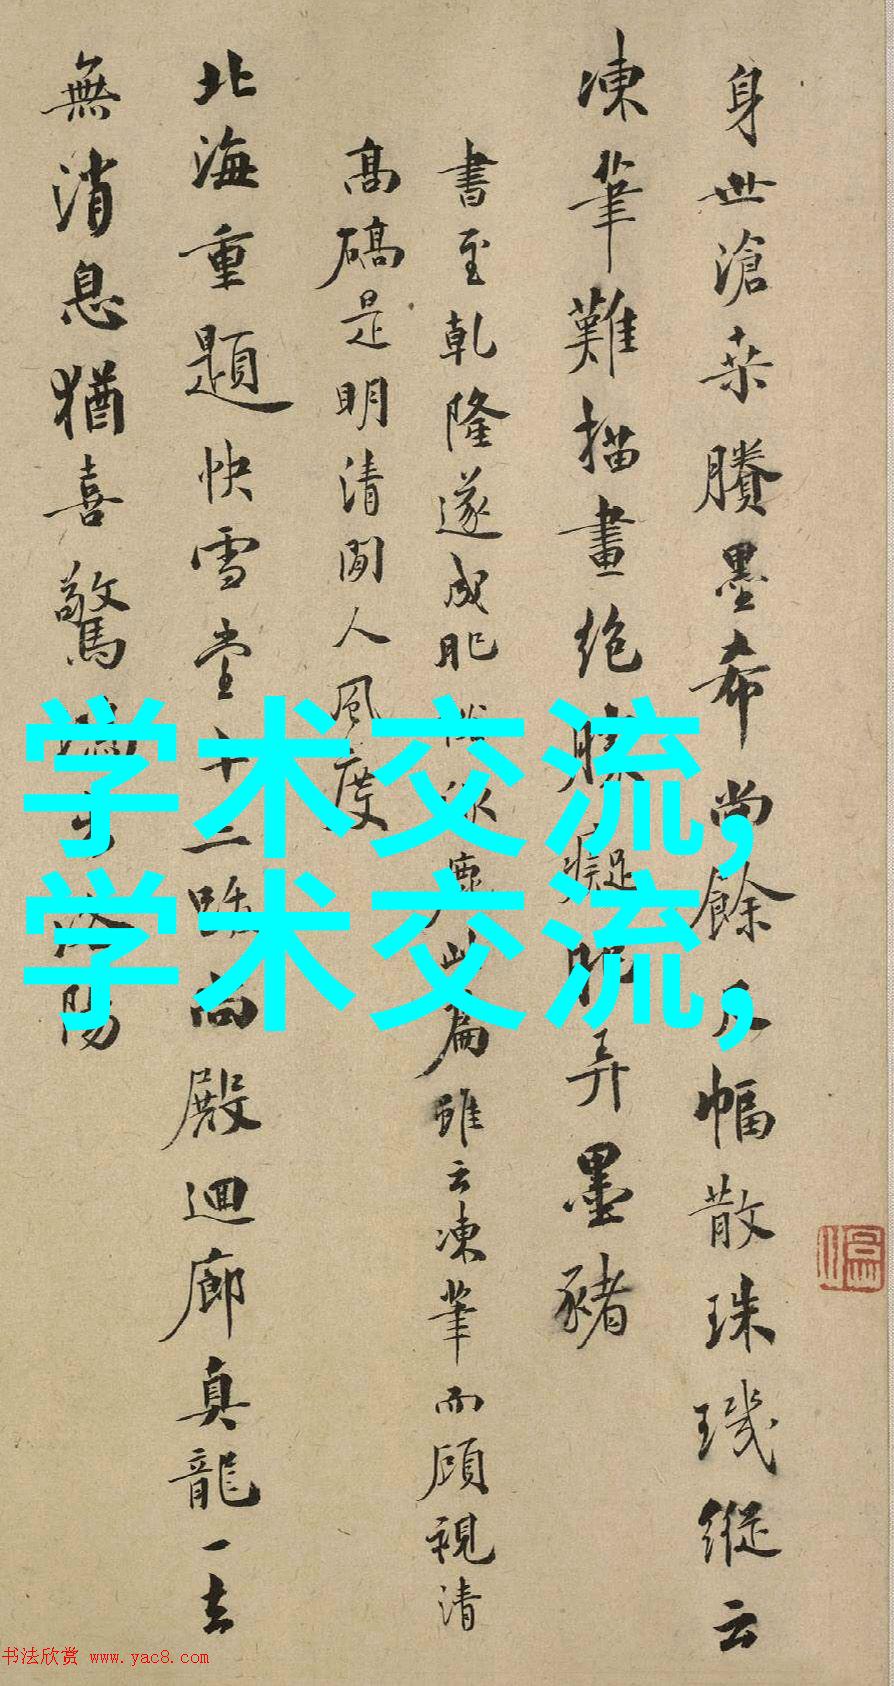 身世滄桑賸墨希尚餘尺幅散珠璣縱云
凍筆難描畫絶勝癡肥弄墨豬
書至乾隆遂成肥此篇雖云凍筆而顧視清
高碻是明清間人風度
北海重題快雪堂十二向殿迴廊真龍一去
無消息猶喜驚陽
学术交流,
学术交流,
书法欣赏 www.yac8.com